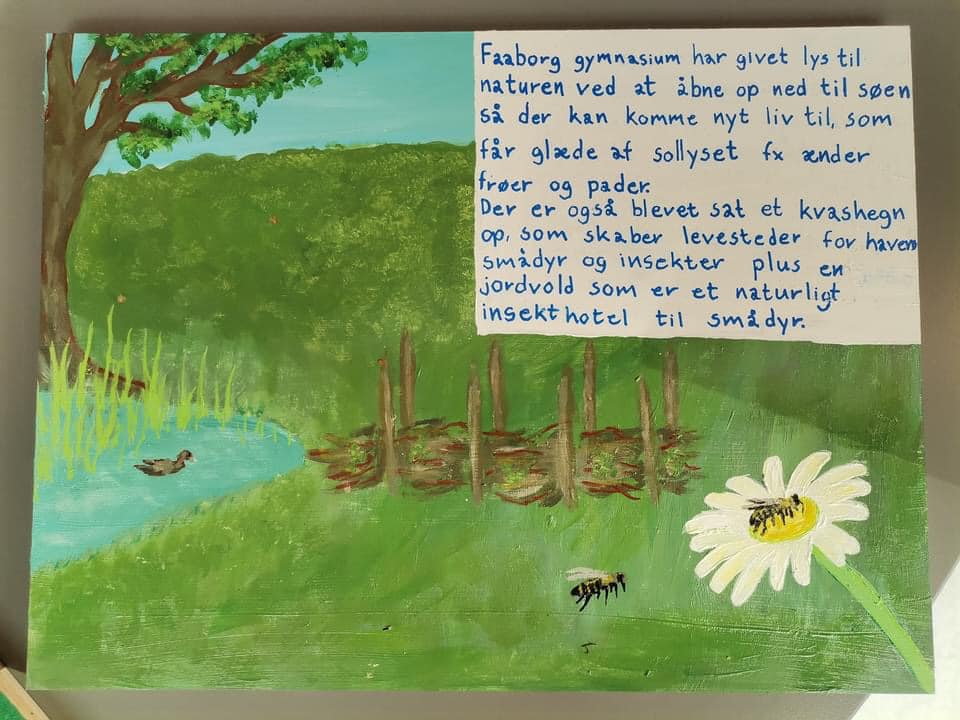 Faaborg gymnasium har givet lys til
naturen ved at åbne op ned til søen
så der kan komme nyt liv til, som
får glæde af sollyset fx ænder
frøer og pader.
Der er også blevet sat et kvashegn
op, som skaber levesteder for havens
smådyr og insekter plus en
jordvold som er et naturligt
insekthotel til smådyr.